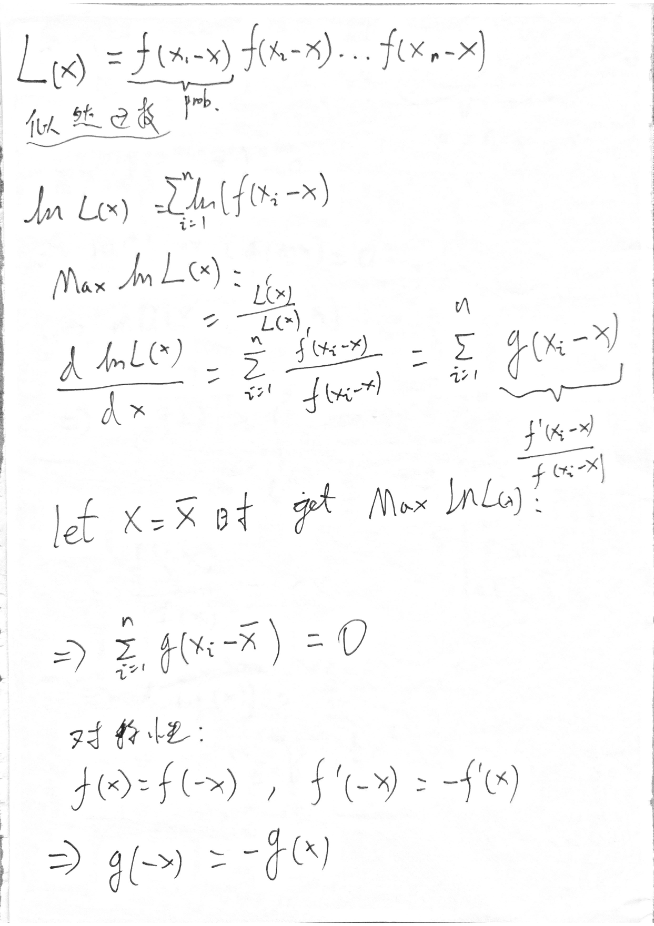 L(x) = f(x₁-x) f(x₂-x)... f(xₙ-x)
prob.
似然函数
ln L(x) = Σ_{i=1}^{n} ln(f(xᵢ-x)
Max ln L(x) :
= L'(x) / L(x)
d ln L(x) / dx = Σ_{i=1}^{n} f'(xᵢ-x) / f(xᵢ-x) = Σ_{i=1}^{n} g(xᵢ-x)
f'(xᵢ-x) / f(xᵢ-x)
let x = x̄ 时 get Max Ln L(x) :
⇒ Σ_{i=1}^{n} g(xᵢ-x̄) = 0
对称性:
f(x) = f(-x) , f'(-x) = -f'(x)
⇒ g(-x) = -g(x)